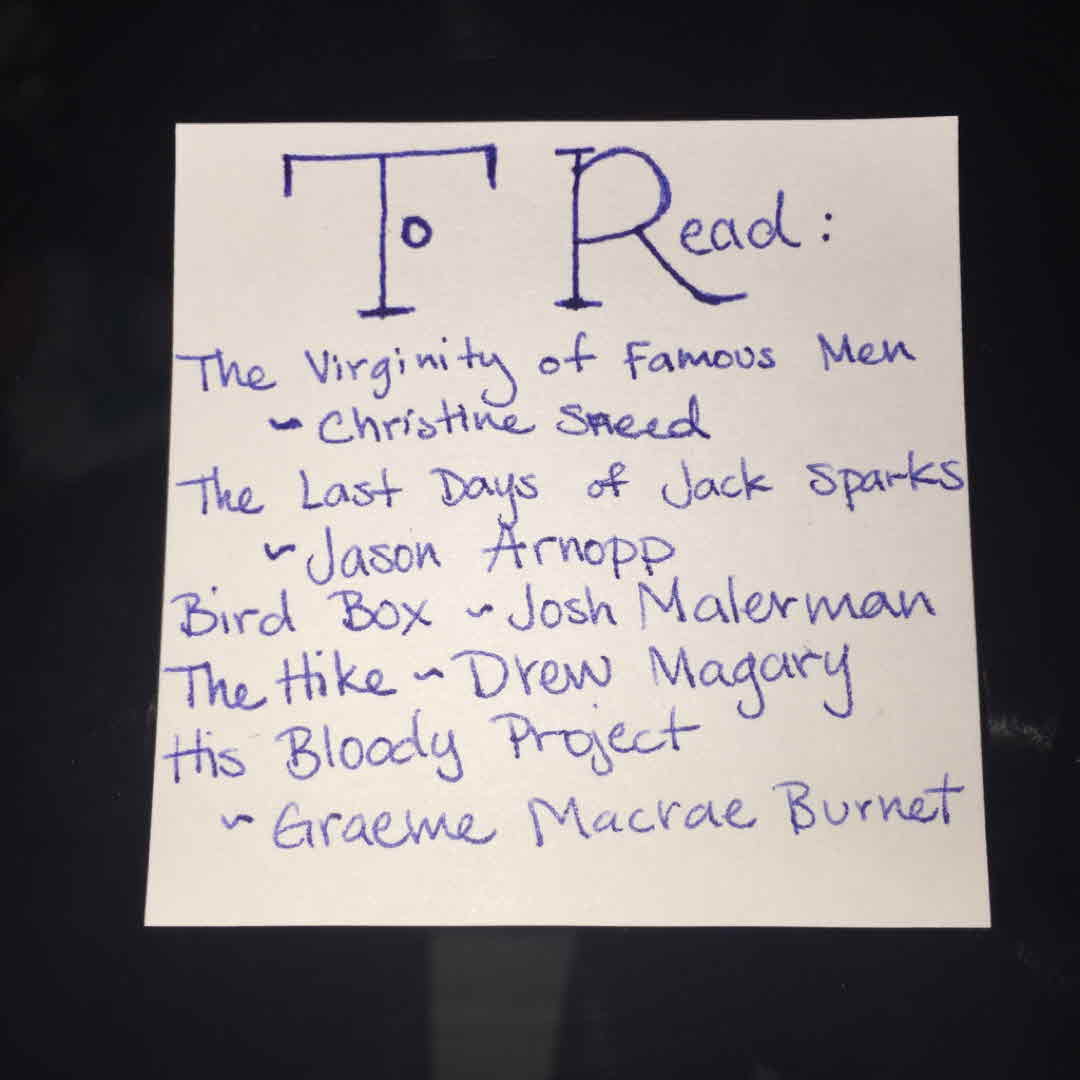 To Read:
The Virginity of Famous Men
~ Christine Sneed
The Last Days of Jack Sparks
~ Jason Arnopp
Bird Box ~ Josh Malerman
The Hike ~ Drew Magary
His Bloody Project
~ Graeme Macrae Burnet